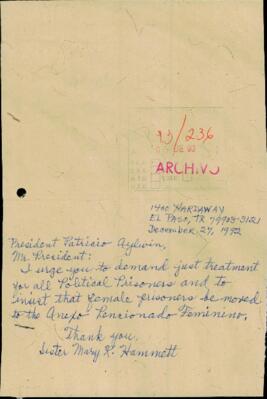 93/236
ARCHIVO
1400 HARDAWAY
EL PASO, TX 79903-3121
December 27, 1992
President Patricio Aylwin,
Mr. President:
I urge you to demand just treatment
for all Political Prisoners and to
insist that female prisoners be moved
to the Anexo Pencionado Femineno.
Thank you,
Sister Mary K. Hammett